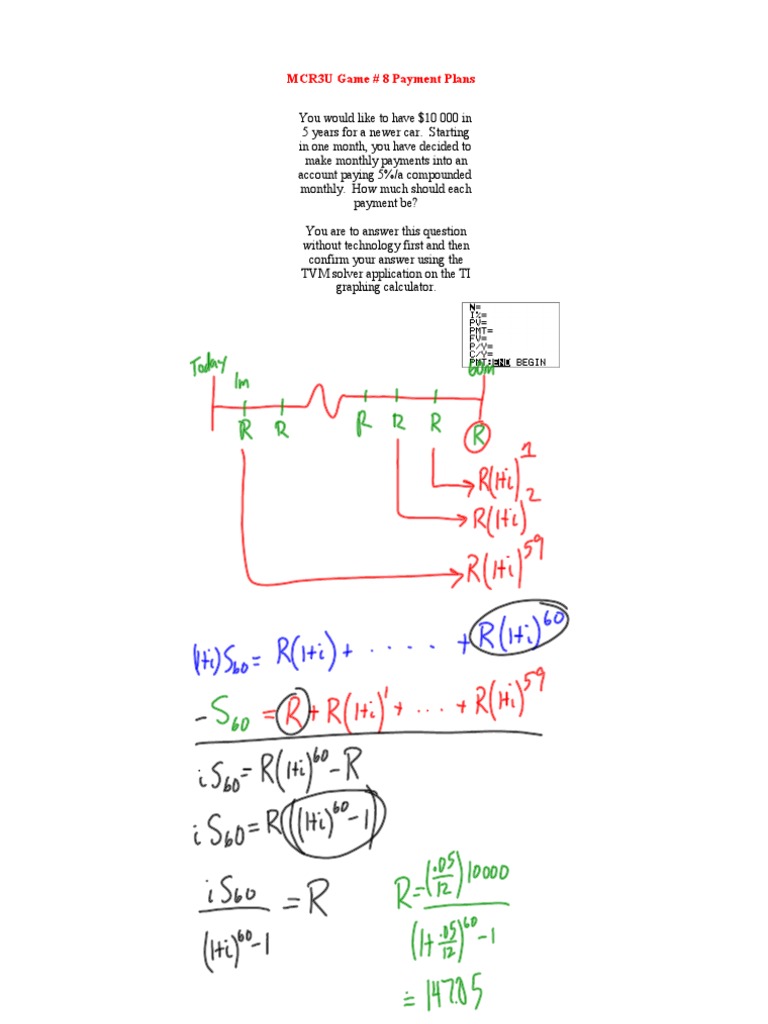 MCR3U Game # 8 Payment Plans
You would like to have $10 000 in
5 years for a newer car. Starting
in one month, you have decided to
make monthly payments into an
account paying 5%/a compounded
monthly. How much should each
payment be?
You are to answer this question
without technology first and then
confirm your answer using the
TVM solver application on the TI
graphing calculator.
N=
I%=
PV=
PMT=
FV=
P/Y=
C/Y=
PMT:END BEGIN
Today 1m 60m
R R R R R R
R(1+i)^1
R(1+i)^2
R(1+i)^59
(1+i)S₆₀ = R(1+i) + ..... + R(1+i)^60
- S₆₀ = R + R(1+i)^1 + ... + R(1+i)^59
iS₆₀ = R(1+i)^60 - R
iS₆₀ = R((1+i)^60 - 1)
iS₆₀ / (1+i)^60 - 1 = R
R = (.05/12)10000 / (1+.05/12)^60 - 1
≐ 147.05